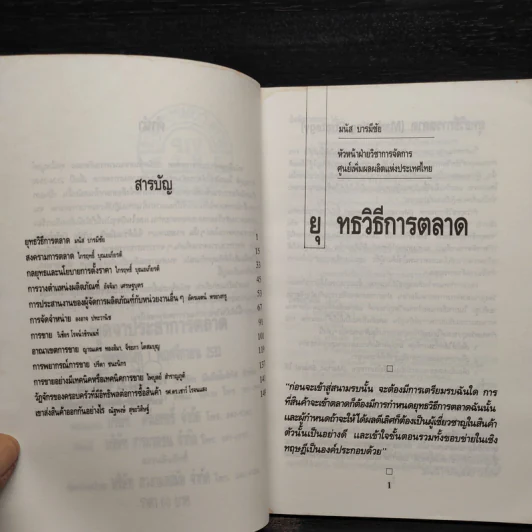 สารบัญ
ยุทธวิธีการตลาด มนัส บารมีชัย 1
สงครามการตลาด ไกรฤทธิ์ บุณยเกียรติ 13
กลยุทธและนโยบายการตั้งราคา ไกรฤทธิ์ บุณยเกียรติ 33
การวางตำแหน่งผลิตภัณฑ์ อัจจิมา เศรษฐบุตร 43
การประสานงานของผู้จัดการผลิตภัณฑ์กับหน่วยงานอื่น ๆ 53
การจัดจำหน่าย 67
การขาย วิเชียร
อาณาเขตการขาย
การพยากรณ์การขาย ปรีดา
การขายอย่างมีเทคนิคหรือเทคนิคการขาย ไพบูลย์ สำราญภูติ
วัฏจักรของครอบครัวที่มีอิทธิพลต่อการซื้อสินค้า
เขาส่งสินค้าออกกันอย่างไร
มนัส บารมีชัย
หัวหน้าฝ่ายวิชาการจัดการ
ศูนย์เพิ่มผลผลิตแห่งประเทศไทย
ยุทธวิธีการตลาด
"ก่อนจะเข้าสู่สนามรบนั้น จะต้องมีการเตรียมรบฉันใด การ
ที่สินค้าจะเข้าตลาดก็ต้องมีการกำหนดยุทธวิธีการตลาดฉันนั้น
และผู้กำหนดถ้าจะให้ได้ผลดีเลิศก็ต้องเป็นผู้เชี่ยวชาญในสินค้า
ตัวนั้นเป็นอย่างดี และเข้าใจขั้นตอนรวมทั้งขอบข่ายในเชิง
ทฤษฎีเป็นองค์ประกอบด้วย"
1